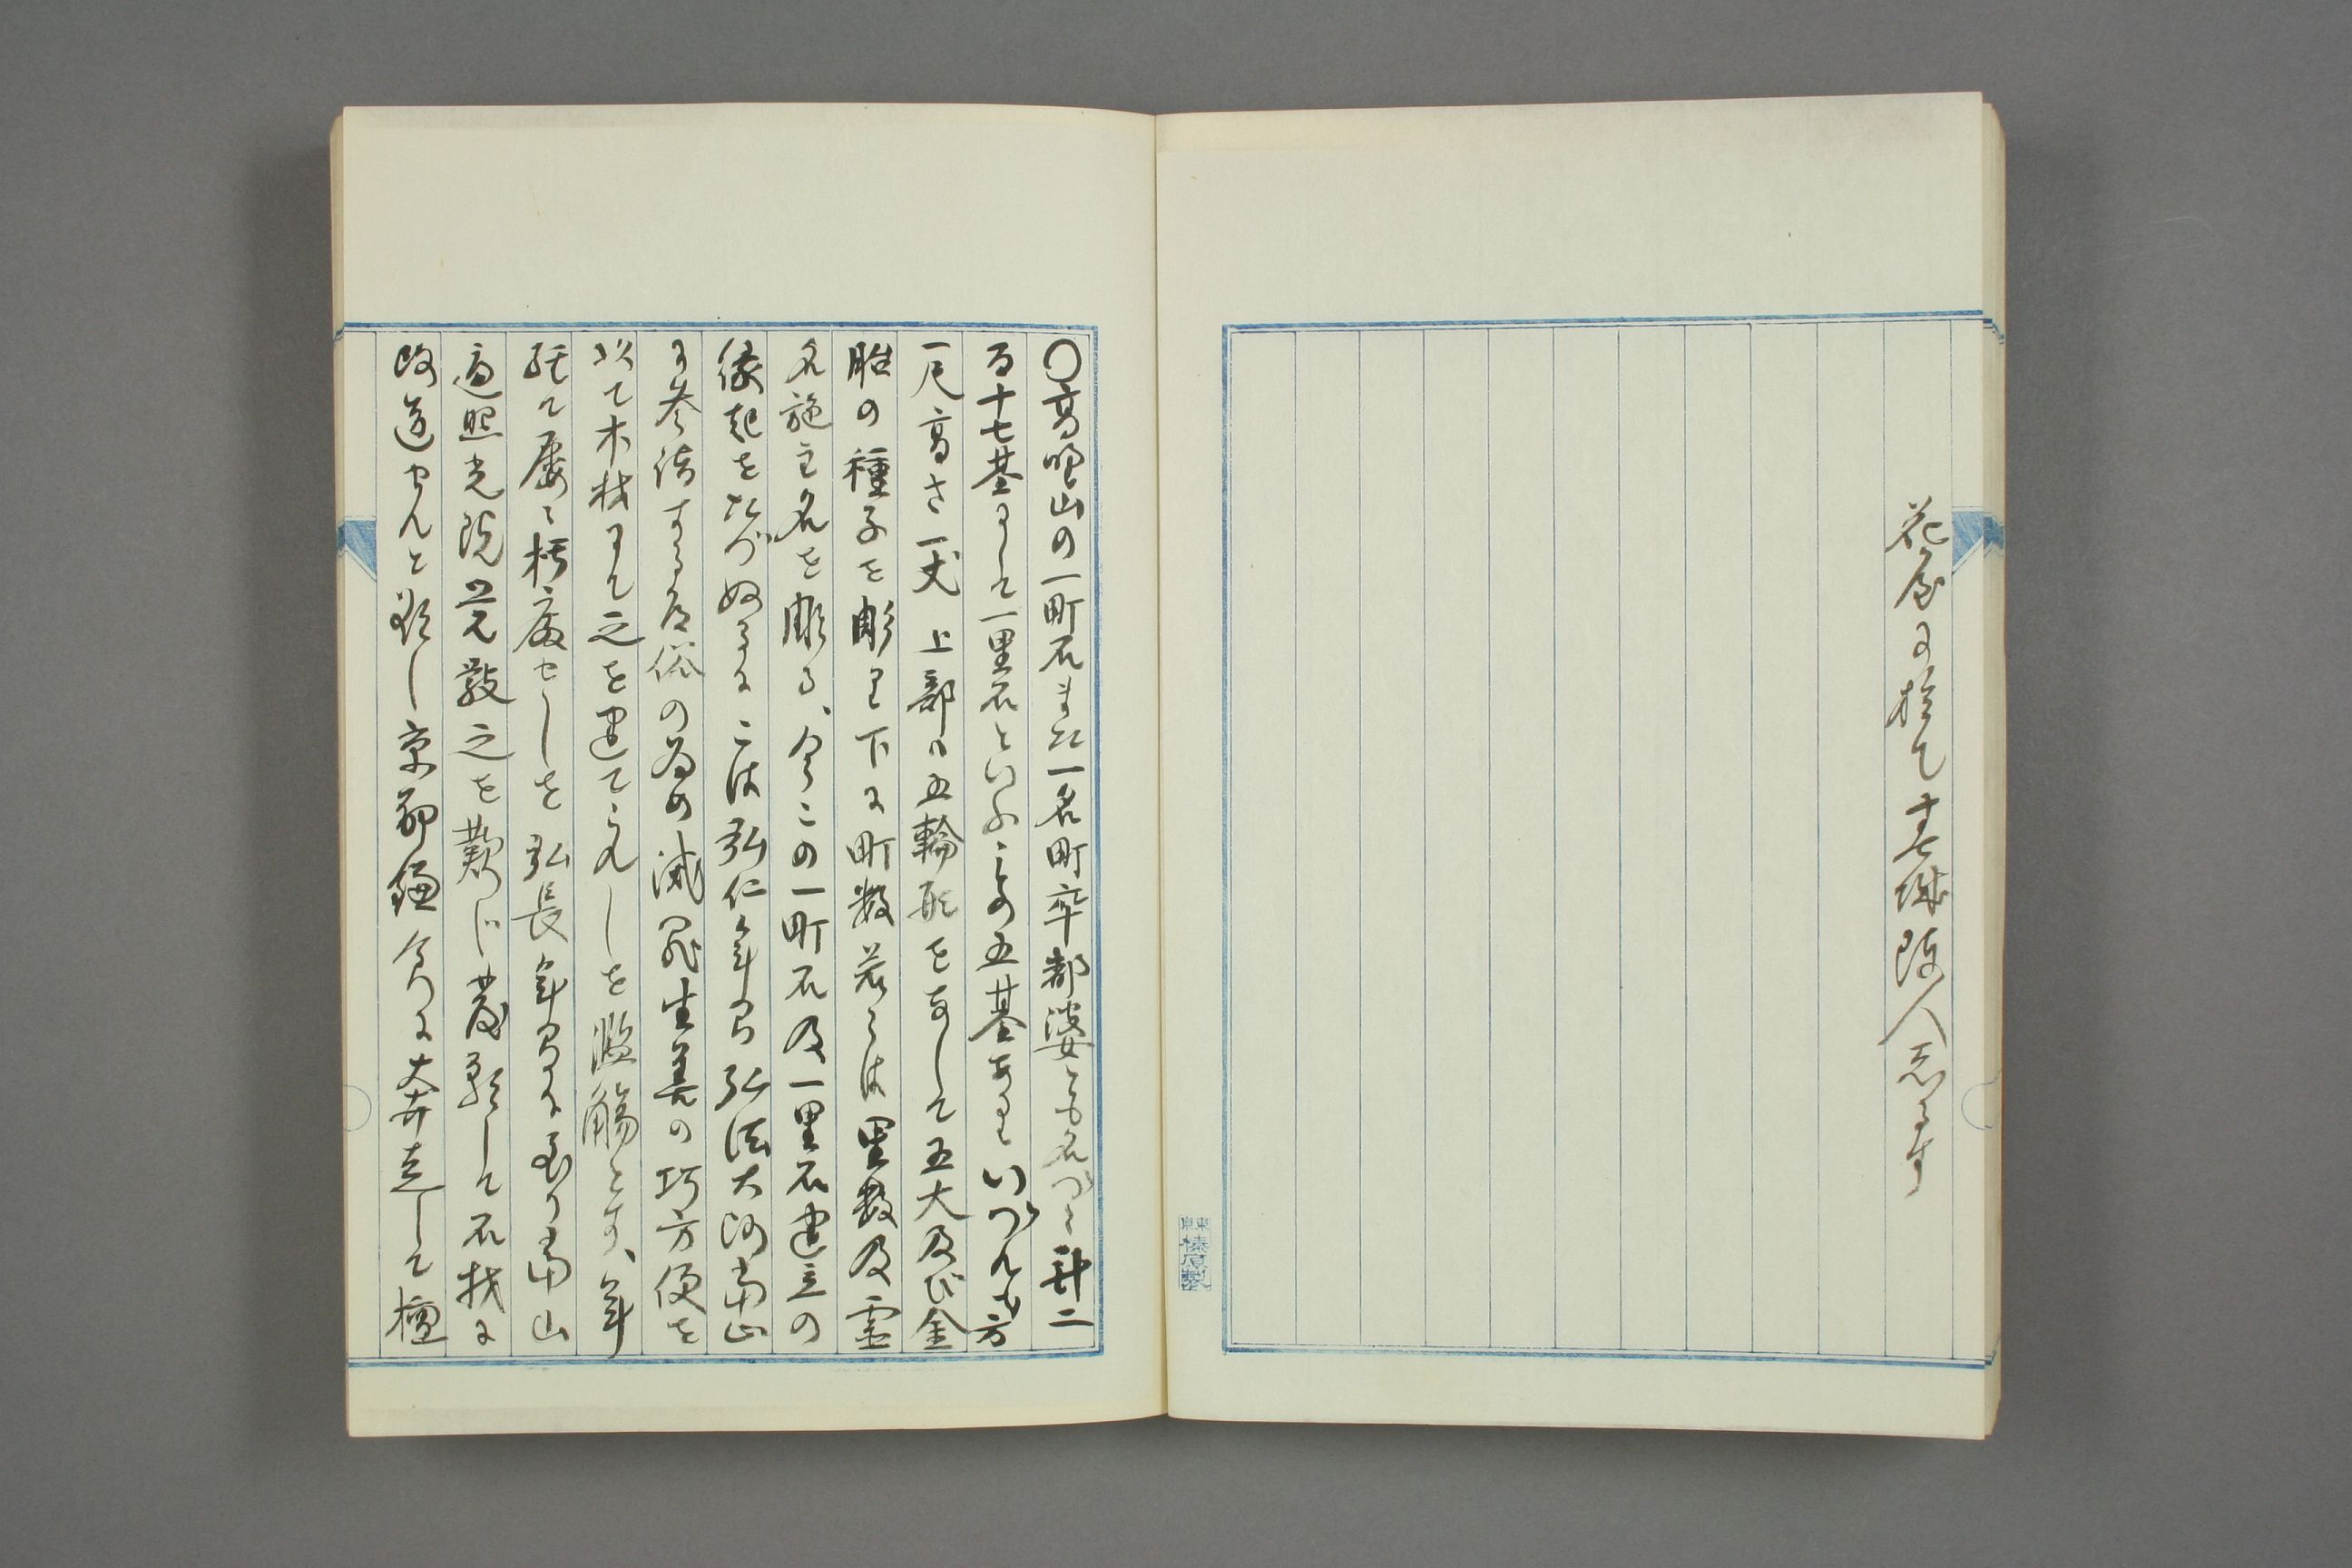 花屋に於て
人志るす
東京榛原製
〇高野山の一町石また一名町卒都婆とも名づく計二
百十七基にして一里石といふもの五基あり いづれも方
一尺高さ一丈 上部は五輪形をなして五大及び金
胎の種子を彫り下に町数若くは里数及霊
名施主名を彫る、今この一町石及一里石建立の
縁起を
こは弘仁年間弘法大師当山
に参詣する道俗の為め滅罪生善の巧方便を
以て木材にて之を建て
しを濫觴とす、年
経て屡々朽廃せしを弘長年間に至り当山
遍照光院覚斅之を歎じ発願して石材に
改造せんと欲し京都鎌倉に大奔走して檀